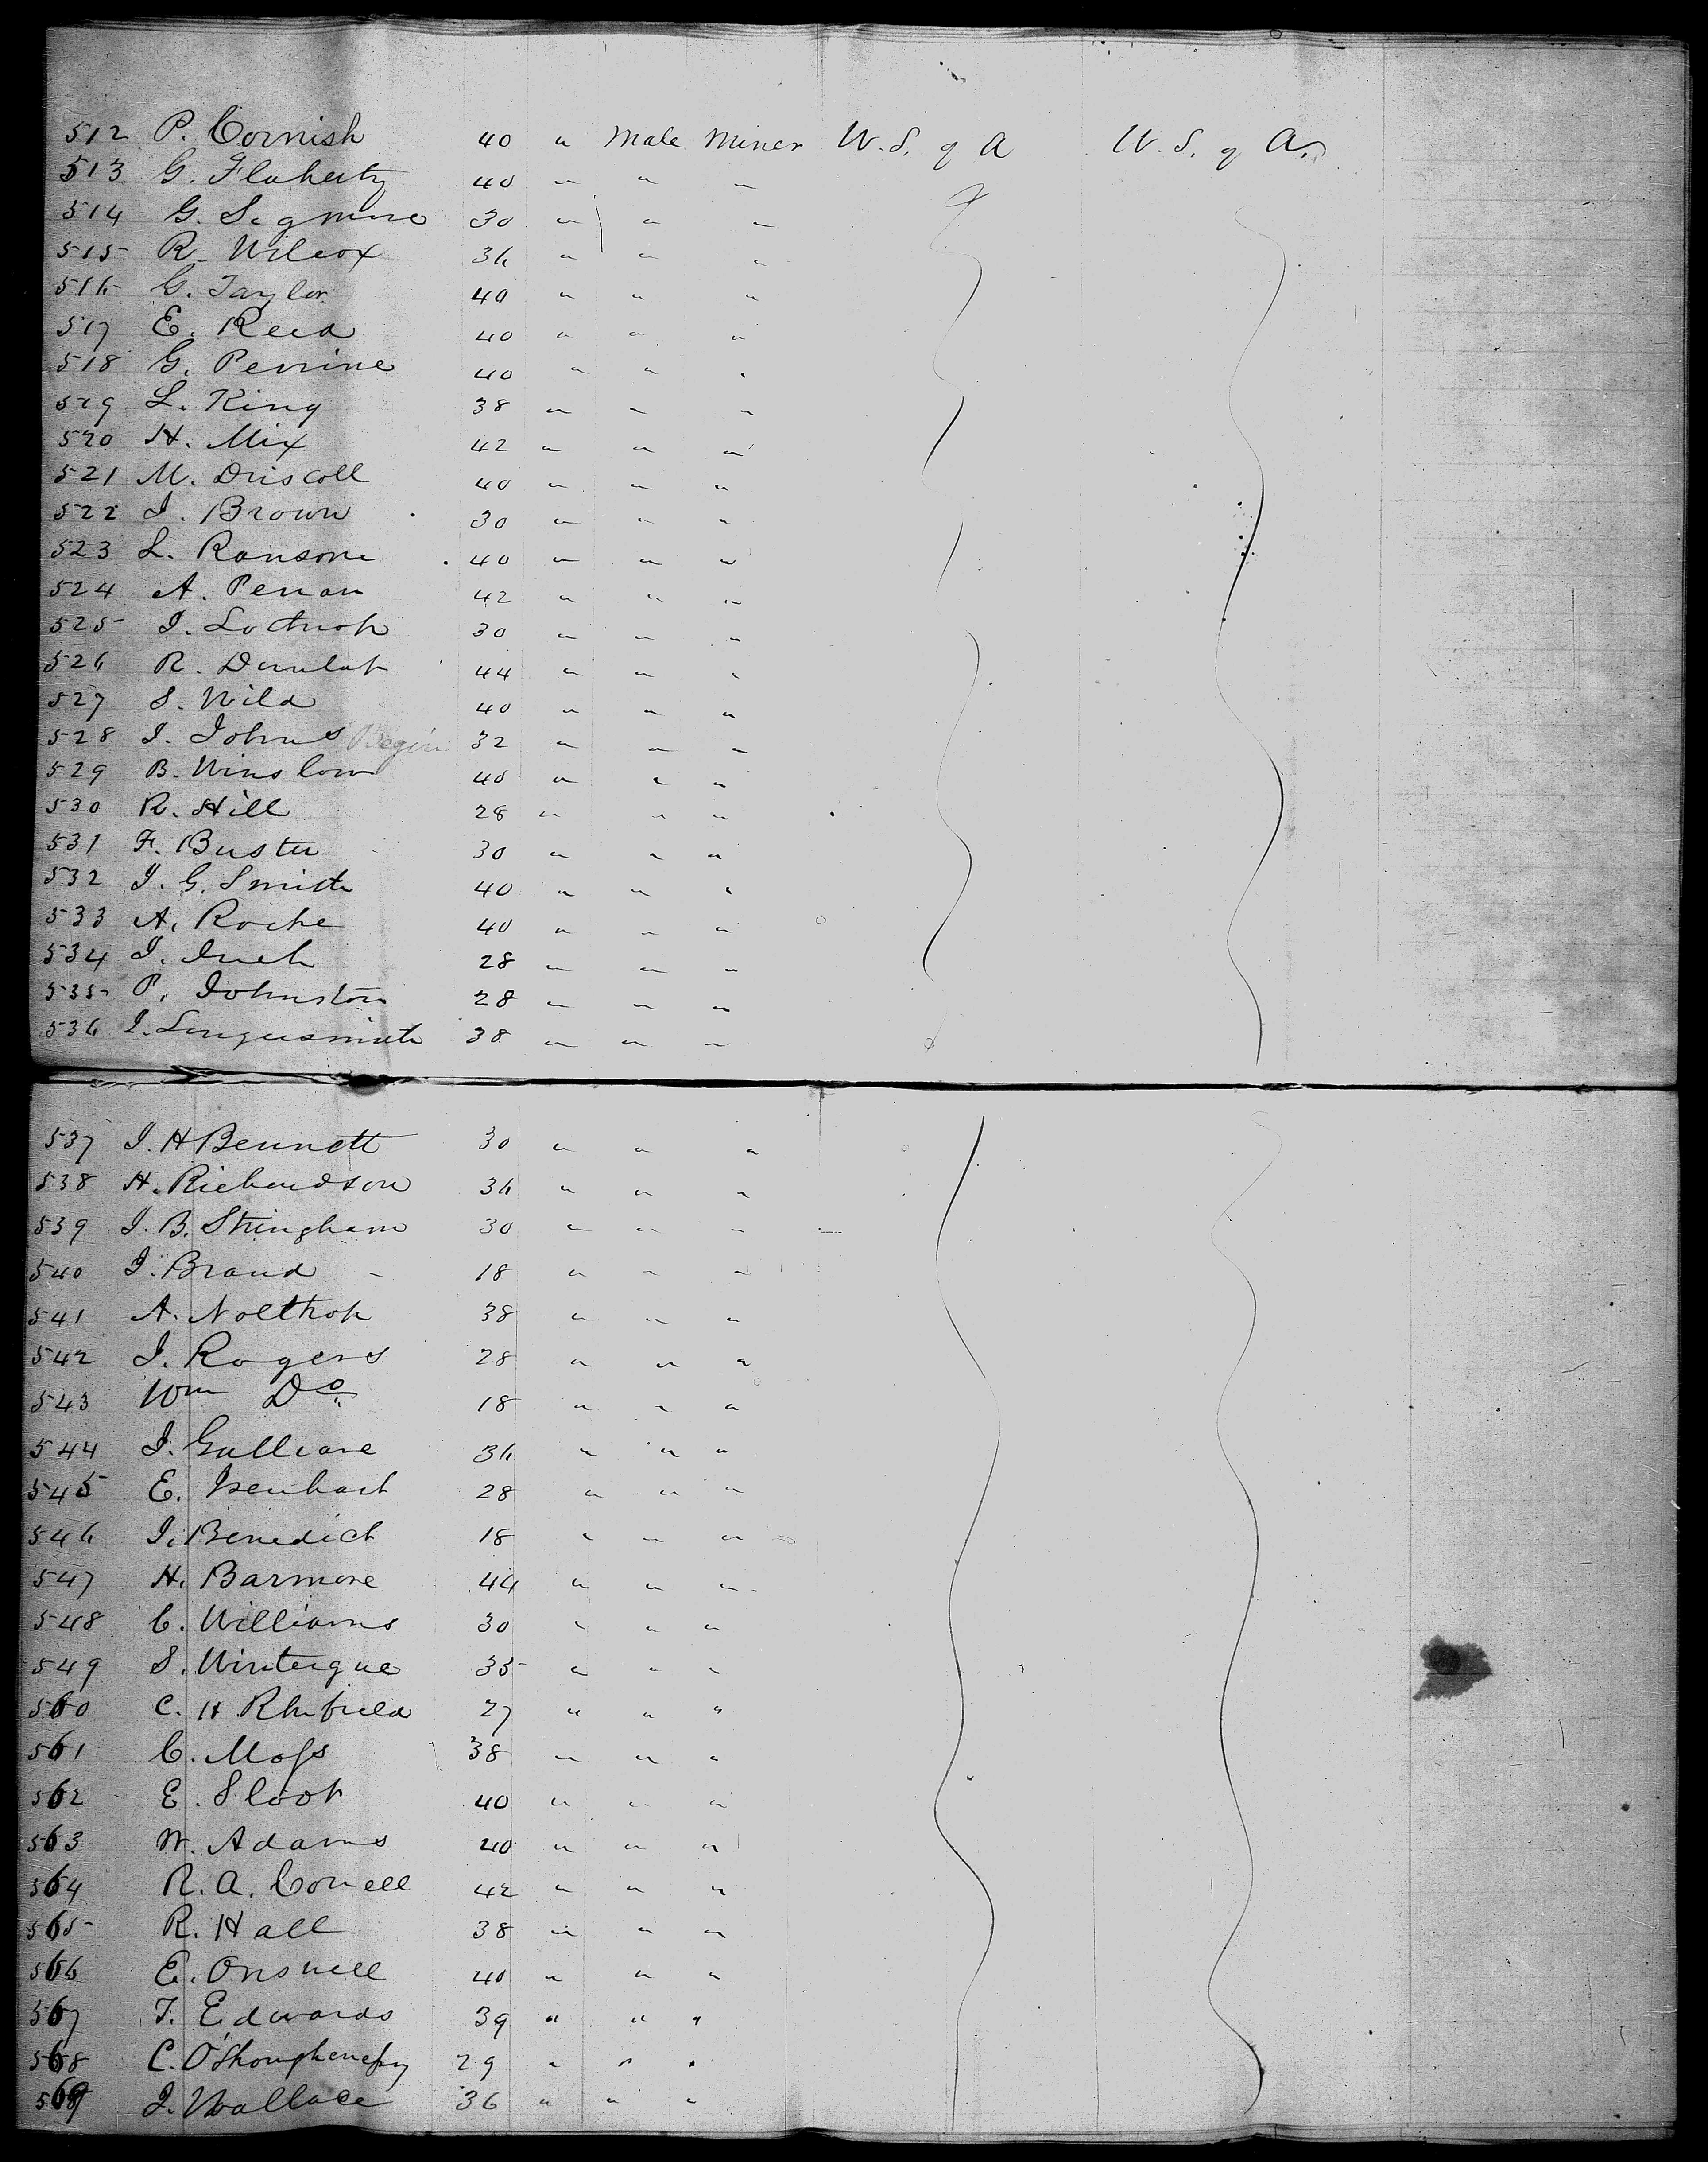 512 P. Cornish 40 " Male Miner U. S. of A U. S. of A.
513 G. Flaherty 40 " " "
514 G. Segmine 30 " " "
515 R. Wilcox 36 " " "
516 G. Taylor 40 " " "
517 E. Reed 40 " " "
518 G. Perrine 40 " " "
519 L. King 38 " " "
520 H. Mix 42 " " "
521 M. Driscoll 40 " " "
522 J. Brown 30 " " "
523 L. Ransom 40 " " "
524 A. Perran 42 " " "
525 J. Lothrop 30 " " "
526 R. Dunlap 44 " " "
527 S. Wild 40 " " "
528 J. Johns Begin 32 " " "
529 B. Winslow 40 " " "
530 R. Hill 28 " " "
531 F. Buster 30 " " "
532 J. G. Smith 40 " " "
533 A. Roche 40 " " "
534 J. 28 " " "
535 P. Johnston 28 " " "
536 J. 38 " " "
537 J. H Bennett 30 " " "
538 H. Richardson 36 " " "
539 J. B. Stringham 30 " " "
540 J. Brand 18 " " "
541 A. Nolthop 38 " " "
542 J. Rogers 28 " " "
543 Wm Do 18 " " "
544 J. Gulliane 36 " " "
545 E. Isenhart 28 " " "
546 J. Benedict 18 " " "
547 H. Barmore 44 " " "
548 C. Williams 30 " " "
549 S. Wintergue 35 " " "
560 C. H 27 " " "
561 C. Moss 38 " " "
562 E. Sloot 40 " " "
563 W. Adams 40 " " "
564 R. A. Correll 42 " " "
565 R. Hall 38 " " "
566 E. 40 " " "
567 T. Edwards 39 " " "
568 C. O'Shoughenessy 29 " " "
569 J. Wallace 36 " " "